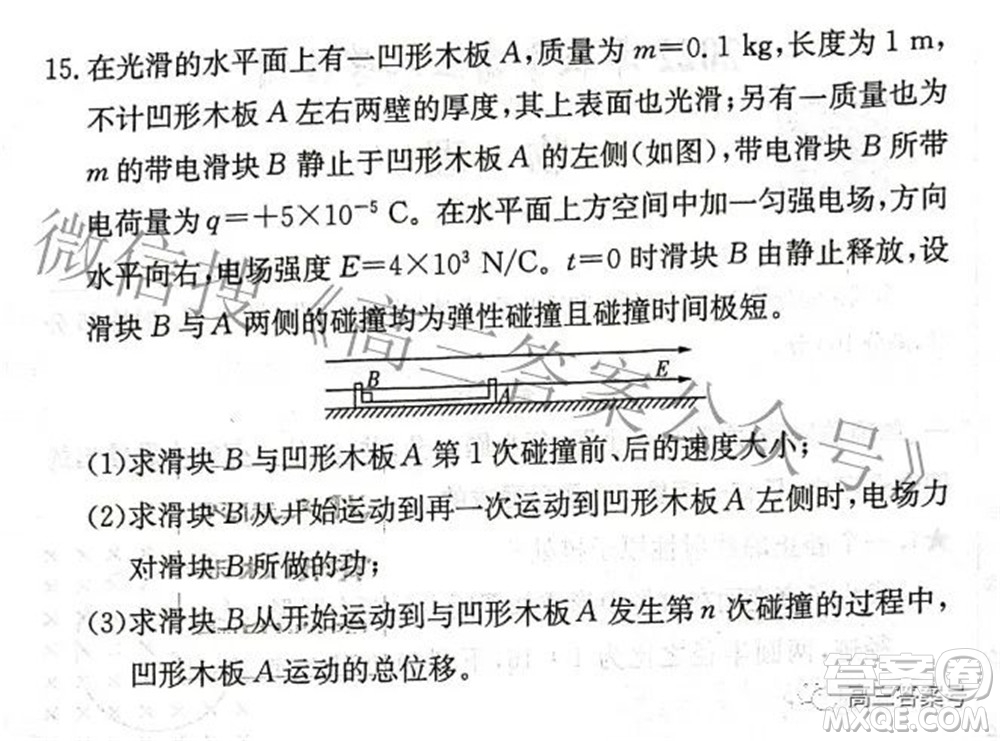 15. 在光滑的水平面上有一凹形木板 A，质量为 m=0.1 kg，长度为 1 m，
不计凹形木板 A 左右两壁的厚度，其上表面也光滑；另有一质量也为
m 的带电滑块 B 静止于凹形木板 A 的左侧(如图)，带电滑块 B 所带
电荷量为 q=+5×10⁻⁵ C。在水平面上方空间中加一匀强电场，方向
水平向右，电场强度 E=4×10³ N/C。t=0 时滑块 B 由静止释放，设
滑块 B 与 A 两侧的碰撞均为弹性碰撞且碰撞时间极短。
B
E
A
(1)求滑块 B 与凹形木板 A 第 1 次碰撞前、后的速度大小；
(2)求滑块 B 从开始运动到再一次运动到凹形木板 A 左侧时，电场力
对滑块 B 所做的功；
(3)求滑块 B 从开始运动到与凹形木板 A 发生第 n 次碰撞的过程中，
凹形木板 A 运动的总位移。
微信搜《高三答案公众号》
高三答案号
答案圈
MXQE.COM